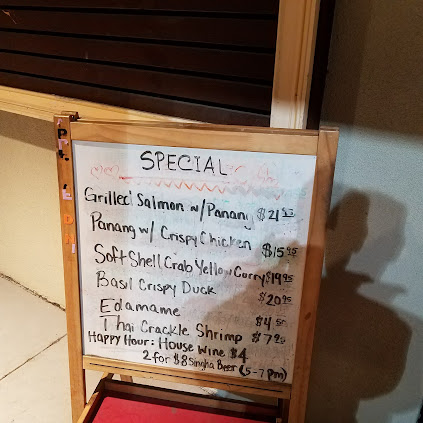 SPECIAL
Grilled Salmon w/Panang $21.95
Panang w/ Crispy Chicken $15.95
Soft Shell Crab Yellow Curry $19.95
Basil Crispy Duck $20.95
Edamame $4.50
Thai Crackle Shrimp $7.95
Happy Hour: House Wine $4
2 for $8 Singha Beer (5-7pm)